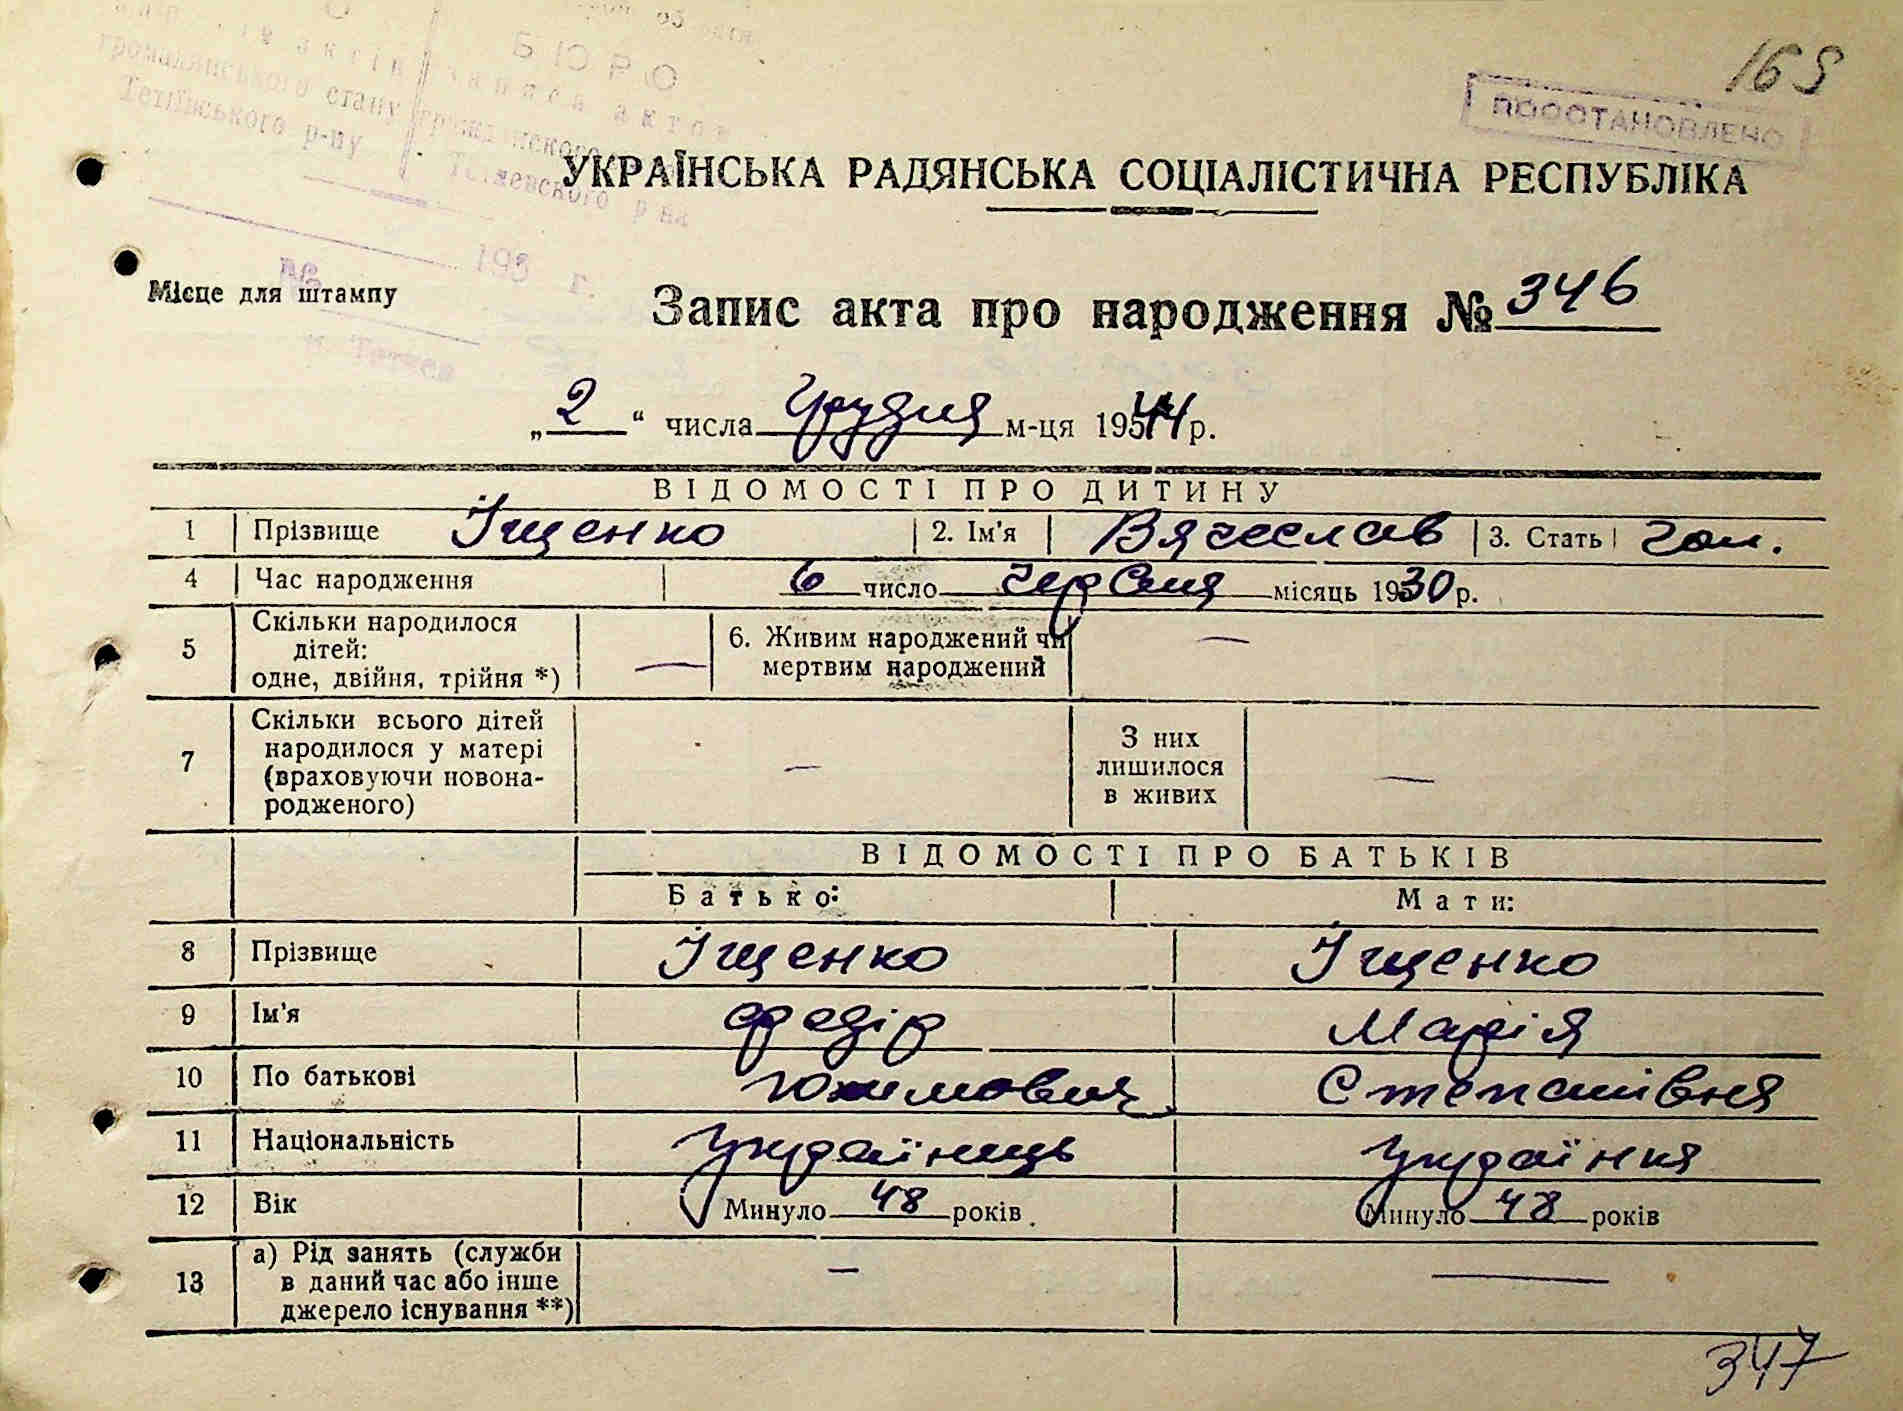 БЮРО
громадянського стану
Тетіївського р-ну
Тетиевского р-на
193 г.
№
м. Тетиев
165
ПООСТАНОВЛЕНО
УКРАЇНСЬКА РАДЯНСЬКА СОЦІАЛІСТИЧНА РЕСПУБЛІКА
Місце для штампу
Запис акта про народження № 346
„2“ числа Грудня м-ця 1944 р.
ВІДОМОСТІ ПРО ДИТИНУ
1 Прізвище Іщенко 2. Ім'я Вячеслав 3. Стать чол.
4 Час народження 6 число Червня місяць 1930 р.
5 Скільки народилося дітей: одне, двійня, трійня *) — 6. Живим народжений чи мертвим народжений —
7 Скільки всього дітей народилося у матері (враховуючи новонародженого) — З них лишилося в живих —
ВІДОМОСТІ ПРО БАТЬКІВ
Батько: Мати:
8 Прізвище Іщенко Іщенко
9 Ім'я Федір Марія
10 По батькові Юхимович Степанівна
11 Національність Українець Українка
12 Вік Минуло 48 років Минуло 48 років
13 а) Рід занять (служби в даний час або інше джерело існування **) — —
347